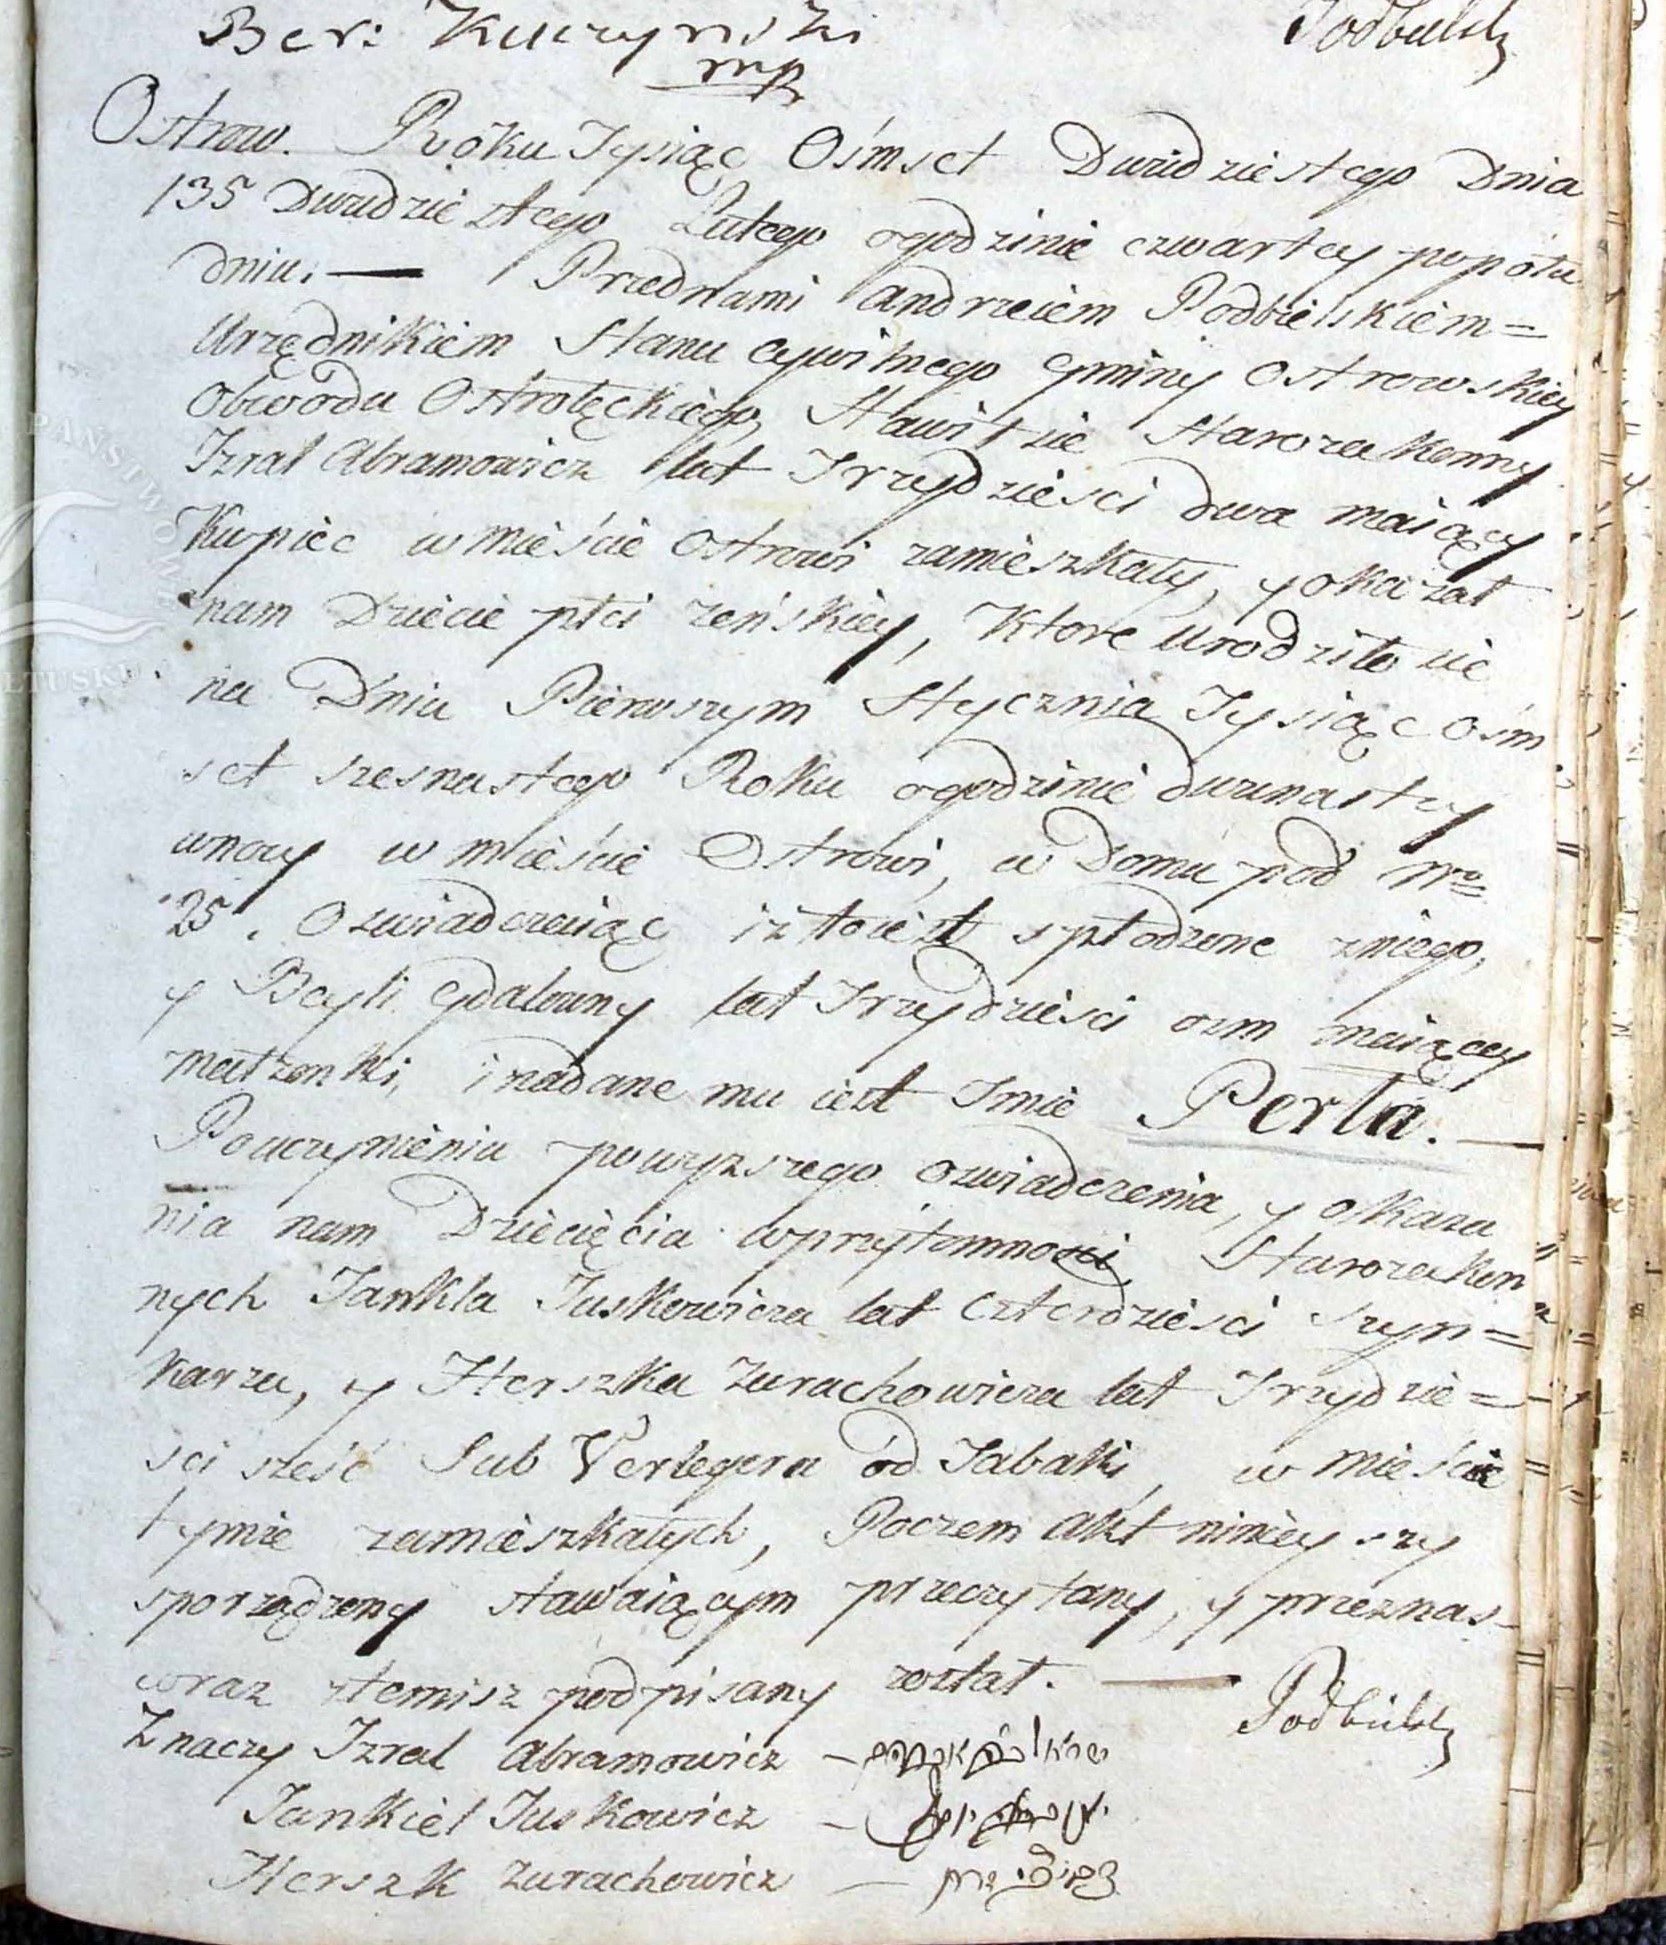 Ber: Kuczynski Podbielski
mp
Ostrow. Roku Tysiąc Ośmset Dwudziestego Dnia
135 Dwudziestego Lutego ogodzinie czwartey popołu
dniu. — Przednami Andrzeiem Podbielskiem=
Urzędnikiem Stanu cywilnego Gminy Ostrowskiey
Obwodu Ostrołęckiego, Stawił sie Starozakonny
Izral Abramowicz lat Trzydziesci dwa maiący
Kupiec w mieście Ostrowi zamieszkały, yokazał
nam Dziecie płci zeńskiey, Ktore urodziło sie
na Dniu Pierwszym Stycznia Tysiąc ośm
set szesnastego Roku ogodzinie dwunastey
wnocy w mieście Ostrowi, w Domu pod Nro
25. Oswiadczaiąc iż toiest spłodzone zniego,
y Beyli Gdalowny lat Trzydziesci osm maiącey
małzonki, i nadane mu iest Imie Perla. —
Pouczynieniu powyzszego oswiadczenia, y okaza
nia nam Dziecięcia wprzytomności Starozakon
nych Jankla Juskowicza lat Czterdziesci szyn=
karza, y Herszka Zurachowicza lat Trzydzie=
sci sześć Sub Verlegera od Tabaki, w mieście
tymże zamieszkałych, Poczem Akt ninieyszy
sporządzony stawaiącym przeczytany, y przeznas
wraz stemisz podpisany został. — Podbielski
Znaczy Izral Abramowicz —
Jankiel Juskowicz —
Herszk Zurachowicz —
PAŃSTWOWE